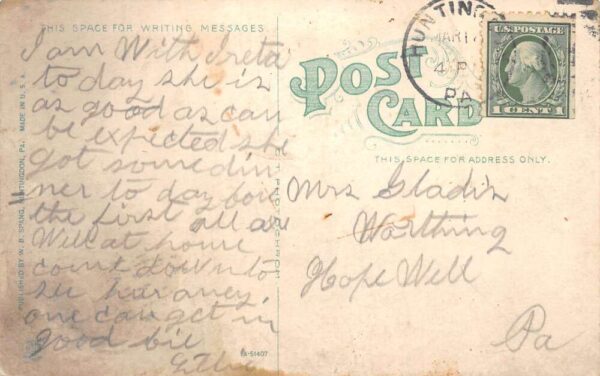 THIS SPACE FOR WRITING MESSAGES
I am With Ireta
to day she is
as good as can
be expected she
got some din
ner to day for
the first all are
Well at home
come down to
see her aney
one can get in
good bie
PUBLISHED BY W. B. SPANG, HUNTINGDON, PA. MADE IN U.S.A.
POST
CARD
THIS SPACE FOR ADDRESS ONLY.
HUNTING
MAR 1
4 P
PA
U.S. POSTAGE
1 CENT 1
Mrs Gladis
Worthing
Hope Well
Pa
A-51407